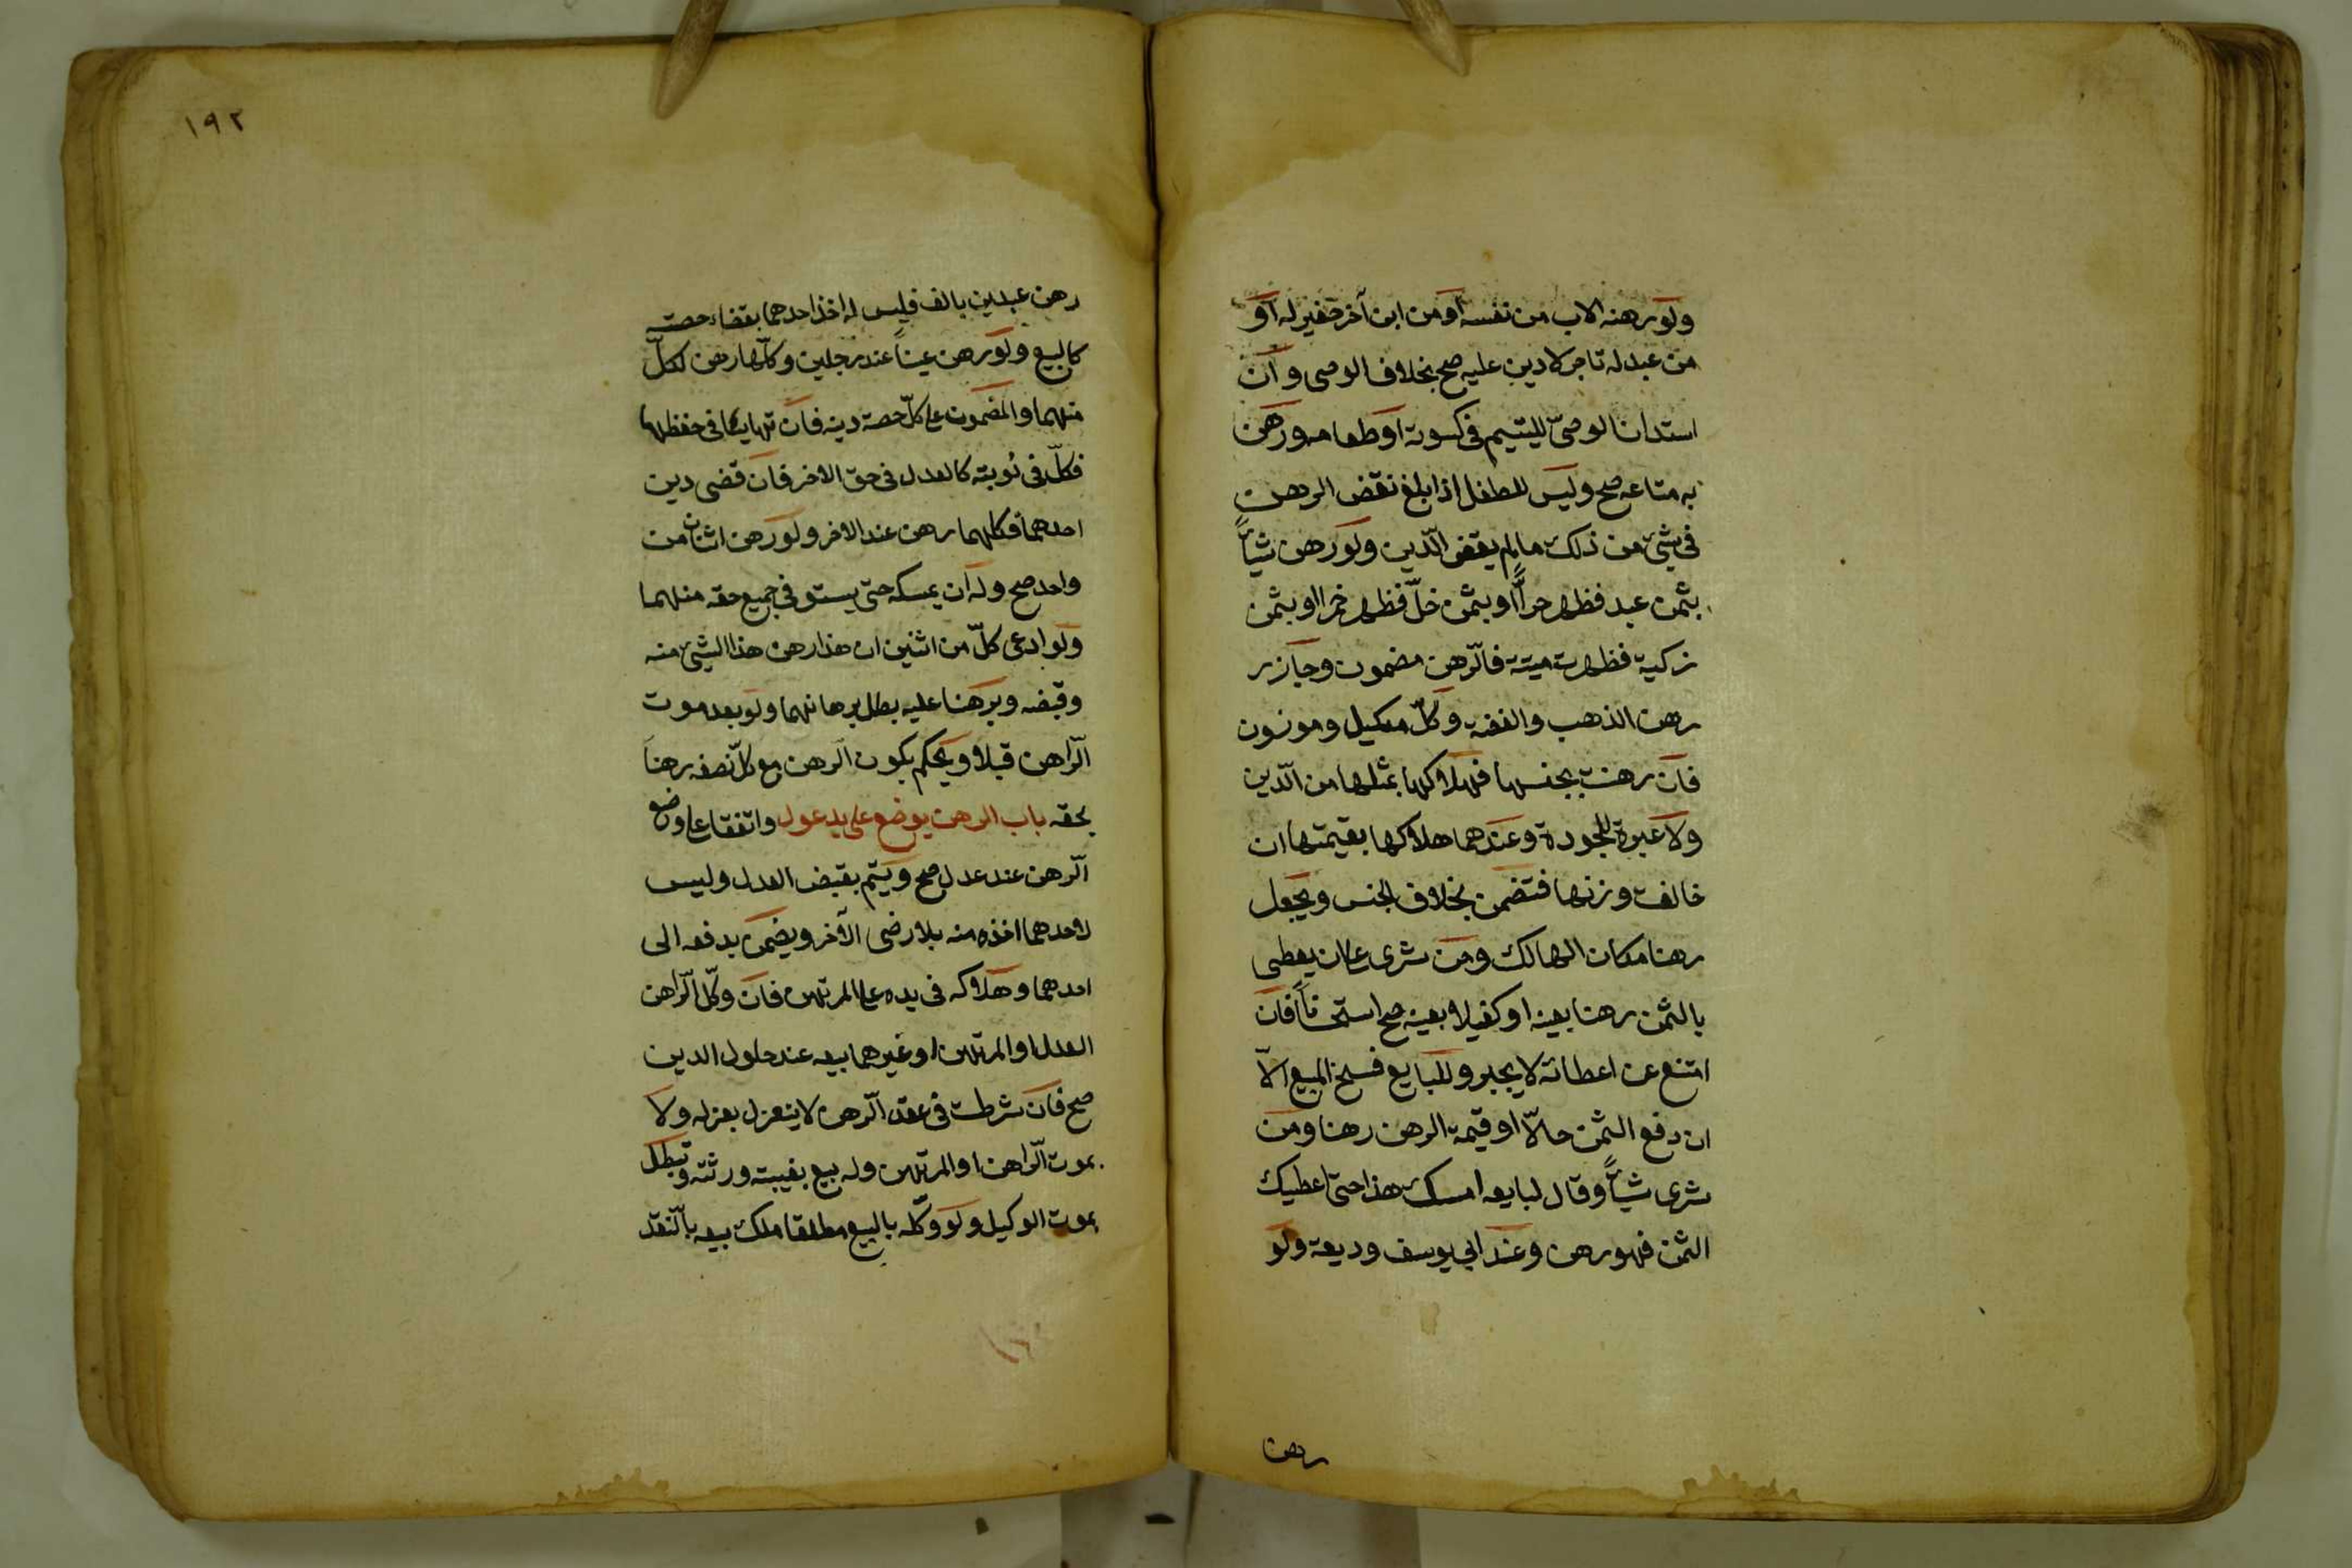 ولو رهنه الاب من نفسه أو من ابن آخر صغير له أو
من عبد له تاجر لا دين عليه صح بخلاف الوصى وان
استدان الوصىّ لليتيم فى كسوته او طعامه ورهن
به متاعه صح وليس للطفل اذا بلغ نقض الرهن
فى شئ من ذلك مالم يقض الدّين ولو رهن شيأً
بثمن عبد فظهر حراًّ او بثمن خلّ فظهر خمرا او بثمن
زكية فظهرت ميتة فالرّهن مضمون وجاز ر
رهن الذهب والفضه وكلّ مكيل وموزون
فان رهنت بجنسها فهلاكها بمثلها من الدّين
ولا عبرة للجودة وعندهما هلاكها بقيمتها ان
خالفت وزنها فتضمن بخلاف الجنس ويجعل
رهنا مكان الهالك ومن شرى على ان يعطى
بالثمن رهنا بعينه او كفيلا بعينه صح استحساناً فان
امتنع عن اعطائه لا يجبر وللبايع فسخ البيع الاّ
ان دفع الثمن حالاّ او قيمة الرهن رهنا ومن
شرى شيأً وقال لبايعه امسك هذا حتى اعطيك
الثمن فهو رهن وعند ابي يوسف وديعة ولو
رهن
١٩٢
رهن عبدين بالف فليس له اخذ احدهما بقضاء حصته
كالبيع ولو رهن عيناً عند رجلين وكلّها رهن لكلّ
منهما والمضمون على كلّ حصة دينه فان تهايئا فى حفظها
فكلّ فى نوبته كالعدل فى حق الاخر فان قضى دين
احدهما فكلها رهن عند الاخر ولو رهن اثنان من
واحد صح وله ان يمسكه حتى يستوفى جميع حقه منهما
ولو ادعى كلّ من اثنين ان هذا رهن هذا الشئ منه
وقبضه وبرهنا عليه بطل برهانهما ولو بعد موت
الرّاهن قبلا ويحكم بكون الرهن مع كلّ نصفه رهناً
بحقه باب الرهن يوضع على يد عدل واتفقا على وضع
الرّهن عند عدل صح ويتم بقبض العدل وليس
لاحدهما اخذه منه بلا رضى الآخر ويضمن بدفعه الى
احدهما وهلاكه فى يده على المرتهن فان وكّل الرّاهن
العدل او المرتهن او غيرهما ببيعه عند حلول الدين
صح فان شرطت فى عقد الرّهن لا ينعزل بعزله ولا
بموت الرّاهن او المرتهن وله بيع بغيبته ورثته وتبطل
بموت الوكيل ولو وكّله بالبيع مطلقا ملك بيعه بالنّقد